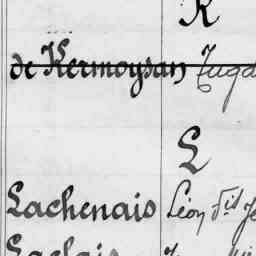 K
de Kermoysan Tuga
L
Lachenais Léon dit Je